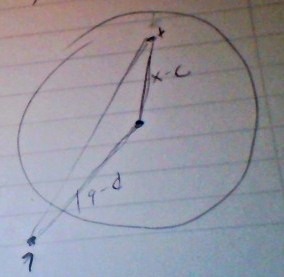 x
x-c
|q-d
q